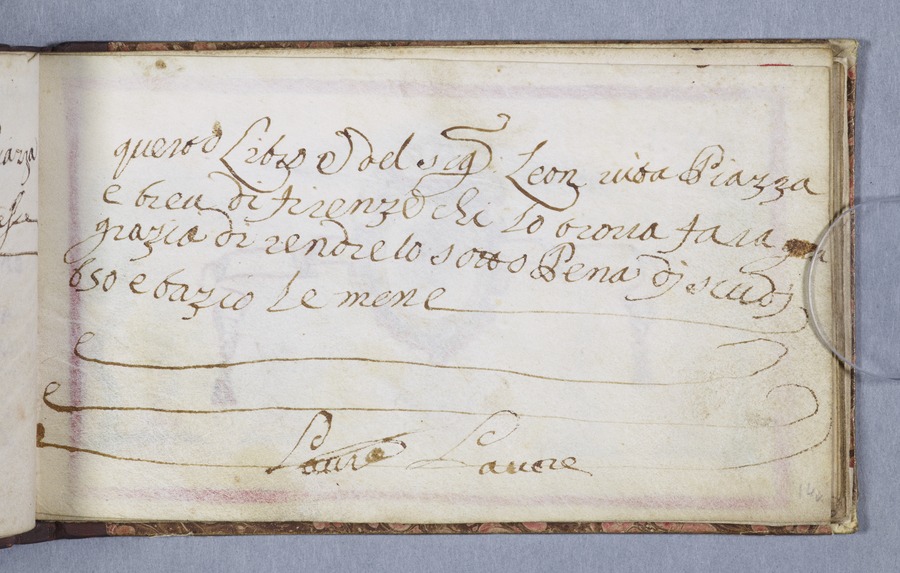 questo Libro e del sig Leon vita Piazza
e breu di firenze chi lo trova fara
grazia di rendrelo sotto Pena di scudi
650 e bazio le mene
Lavore